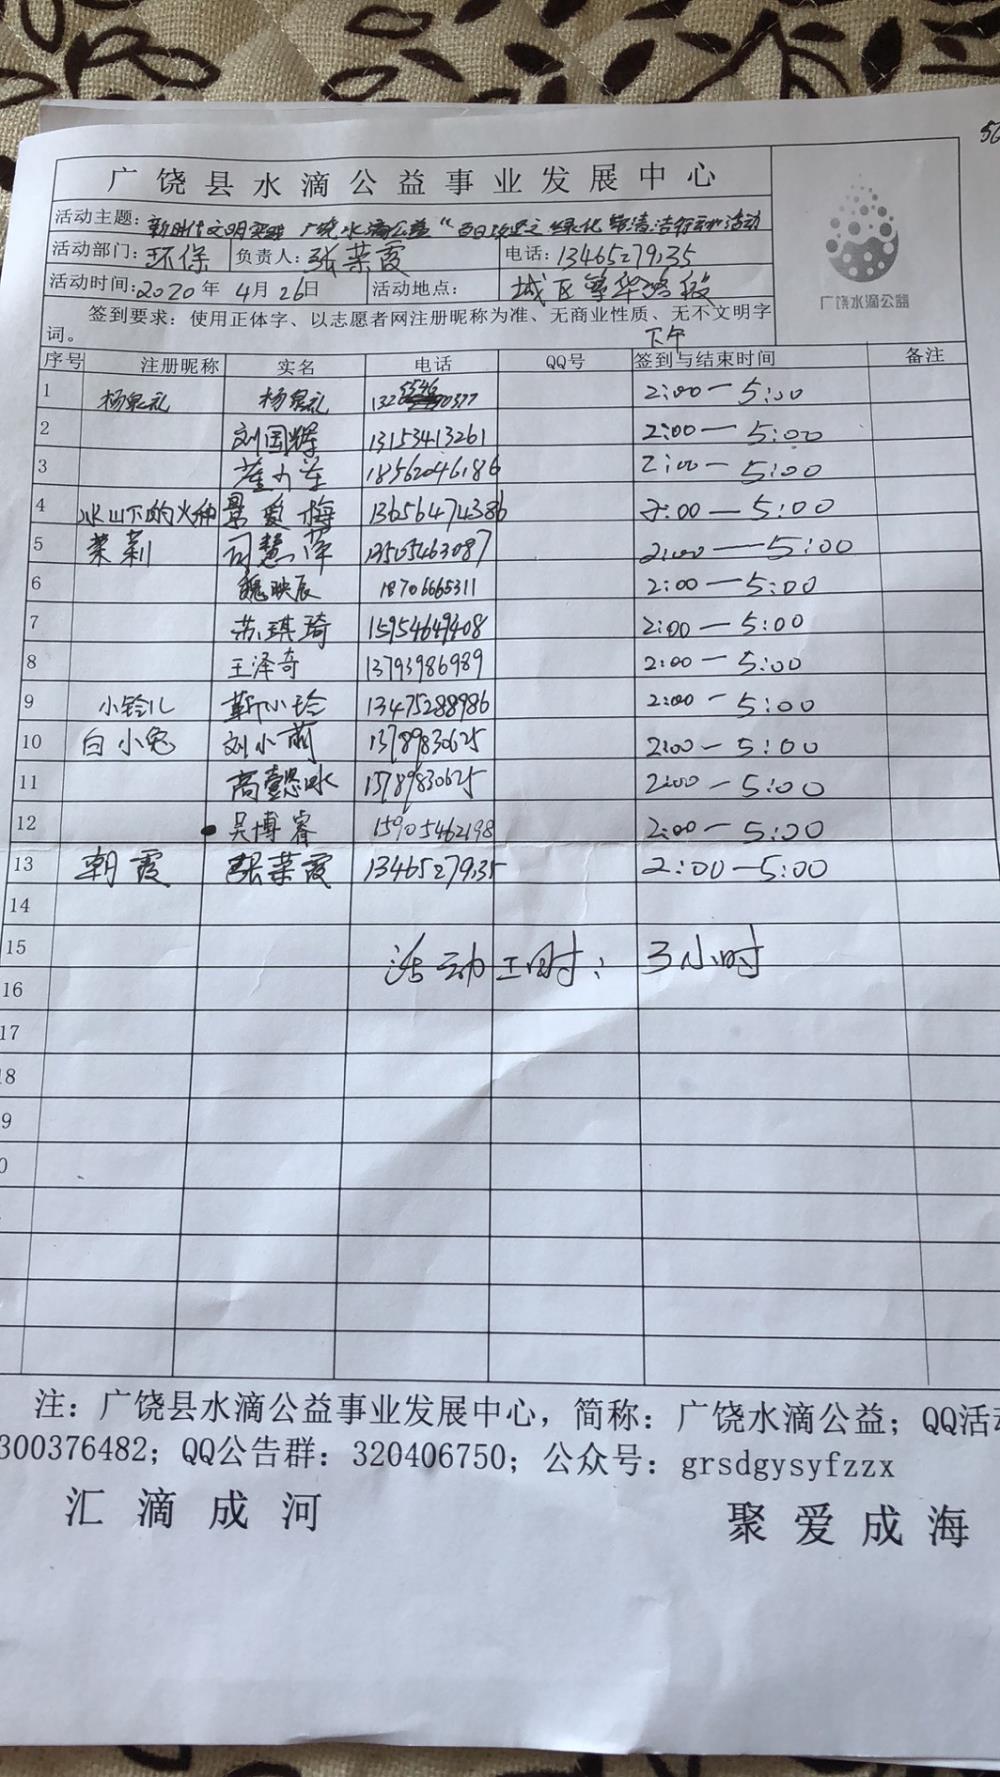 广饶县水滴公益事业发展中心
活动主题: 新时代文明实践 广饶水滴公益“百日攻坚之绿化带清洁行动”活动
活动部门: 环保 负责人: 张荣霞 电话: 13465279135
活动时间: 2020年 4月26日 活动地点: 城区 路段
广饶水滴公益
签到要求: 使用正体字、以志愿者网注册昵称为准、无商业性质、无不文明字
词。 下午
序号 注册昵称 实名 电话 QQ号 签到与结束时间 备注
1 杨泉礼 杨泉礼 2:00—5:00
2 刘国辉 13153413261 2:00—5:00
3 18562046186 2:00—5:00
4 冰山下的火种 景爱梅 13656474386 2:00—5:00
5 茉莉 慧萍 13505463087 2:00—5:00
6 魏映辰 18706665311 2:00—5:00
7 苏琪琦 15954649408 2:00—5:00
8 王泽奇 13793986989 2:00—5:00
9 小铃儿 靳小玲 13475288986 2:00—5:00
10 白小兔 刘小 13789830625 2:00—5:00
11 高懿 13789830625 2:00—5:00
12 吴博睿 15905462198 2:00—5:00
13 朝霞 张荣霞 13465279135 2:00—5:00
14
15 活动工时: 3小时
16
17
18
9
0
注: 广饶县水滴公益事业发展中心, 简称: 广饶水滴公益; QQ活动
300376482; QQ公告群: 320406750; 公众号: grsdgysyfzzx
汇滴成河 聚爱成海